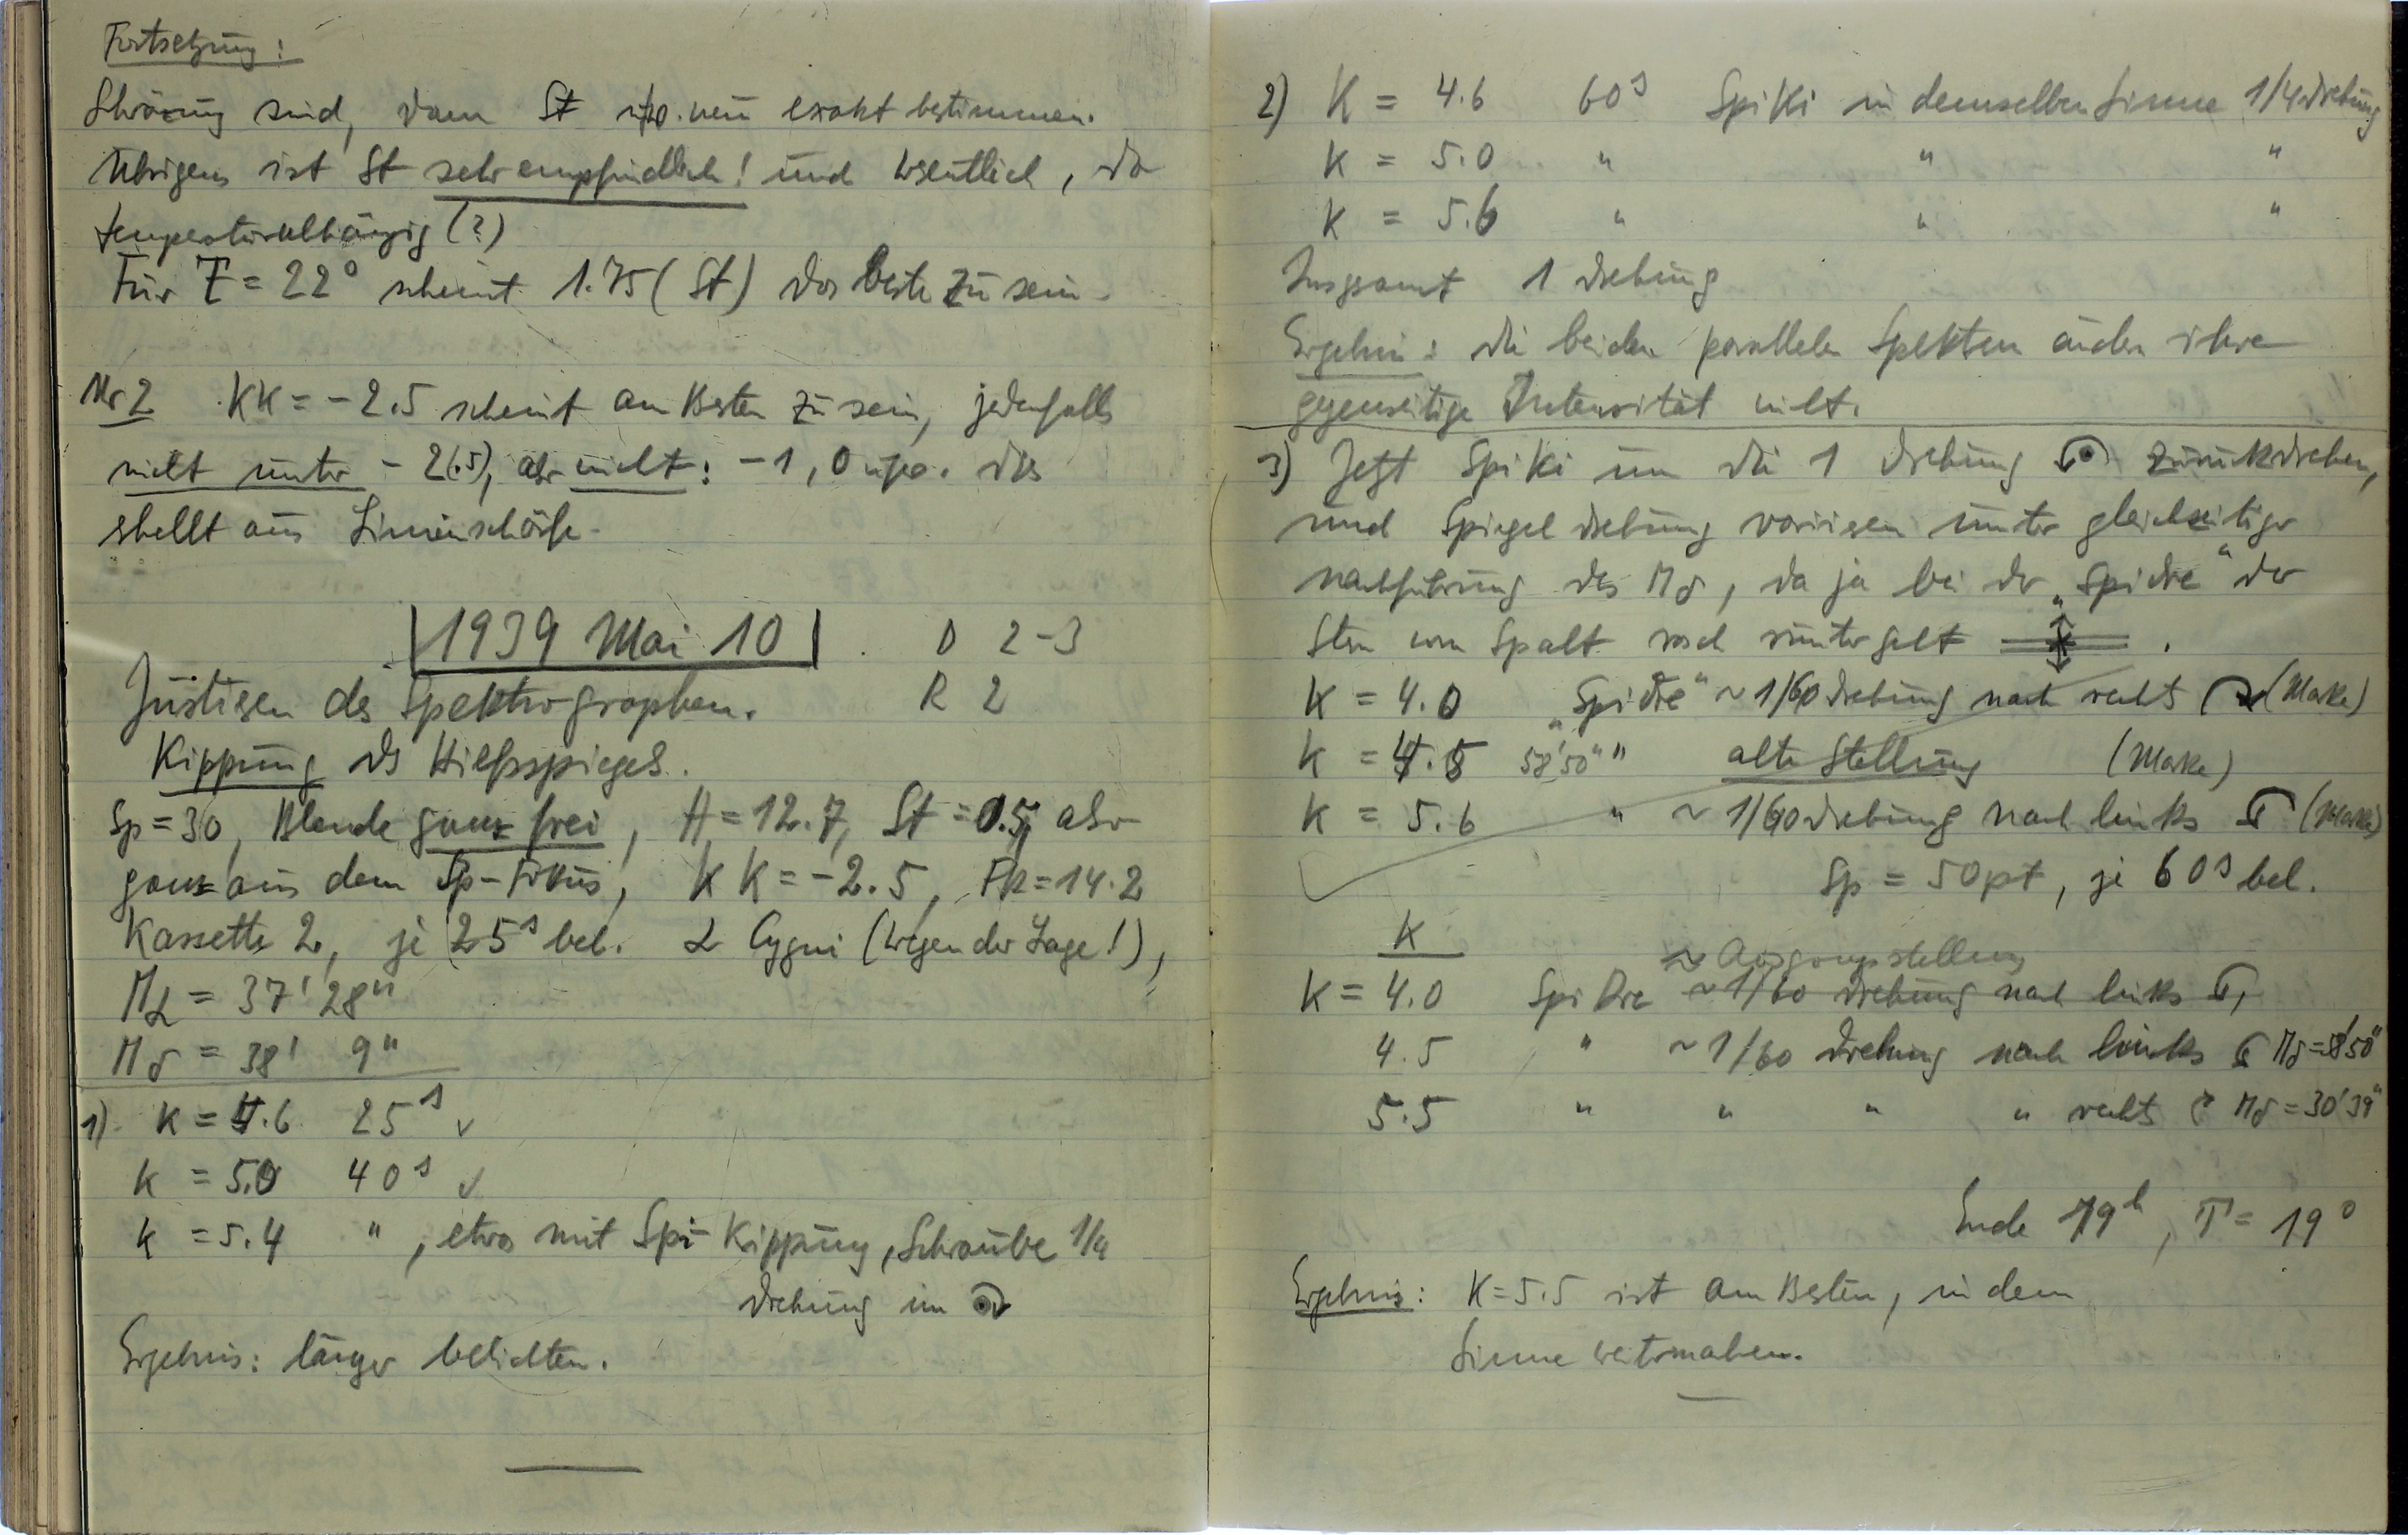 Fortsetzung:
sind, dann St neu exakt bestimmen.
Übrigens ist St sehr empfindlich! und wesentlich, da
temperaturabhängig (?)
Für T = 22° scheint 1.75 (St) das beste zu sein.
Nr 2 KK = -2.5 scheint am Besten zu sein, jedenfalls
nicht unter - 2(.5), aber nicht: -1, 0 usw. Dies
stellt aus Linienschärfe.
1939 Mai 10 D 2-3
Justieren des Spektrographen. R 2
Kippung des Hilfsspiegels.
Sp = 30, Blende ganz frei, H = 12.7, St = 0.5, aber
ganz aus dem Sp-Fokus, KK = -2.5, = 14.2
Kassette 2, je 25s bel. α Cygni (wegen der Lage!),
Mα = 37' 28"
Mδ = 38' 9"
1) K = 4.6 25s ✓
K = 5.0 40s ✓
K = 5.4 " , etwa mit Spi-Kippung, Schraube 1/4
Drehung im
Ergebnis: länger belichten.
2) K = 4.6 60s SpiKi in demselben Sinne 1/4 Drehung
K = 5.0 " " "
K = 5.6 " " "
Insgesamt 1 Drehung
Ergebnis: die beiden parallelen Spektren ändern ihre
gegenseitige Intensität nicht.
3) Jetzt SpiKi um die 1 Drehung zurückdrehen,
und Spiegeldrehung variieren unter gleichzeitiger
Nachführung des Mδ, da ja bei der „Spidre“ der
Stern vom Spalt rauf runter geht.
K = 4.0 „Spidre“ ~ 1/60 Drehung nach rechts (Marke)
K = 4.5 58'50" " alte Stellung (Marke)
K = 5.6 " ~ 1/60 Drehung nach links (Marke)
Sp = 50pt, je 60s bel.
K
≈ Ausgangsstellung
K = 4.0 SpiDre ~1/60 Drehung nach links
4.5 " ~ 1/60 Drehung nach links Mδ = 58'50"
5.5 " " " " rechts Mδ = 30'39"
Ende 19h, T = 19°
Ergebnis: K = 5.5 ist am Besten, in dem
Sinne weitermachen.